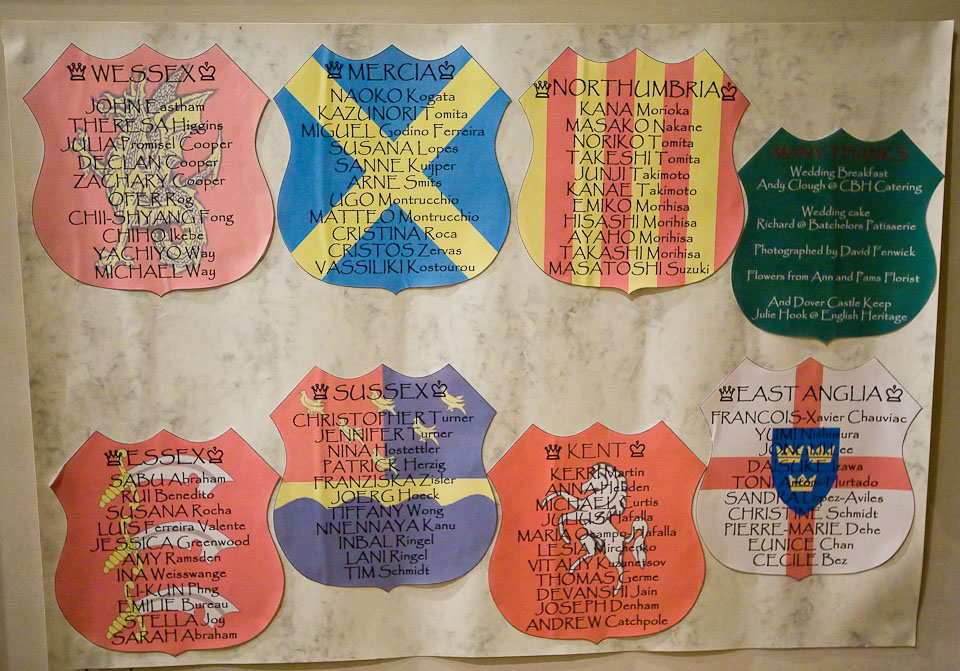 WESSEX
JOHN Eastham
THERESA Higgins
JULIA Promisel Cooper
DECLAN Cooper
ZACHARY Cooper
OFER Rog
CHII-SHYANG Fong
CHIHO Ikebe
YACHIYO Way
MICHAEL Way
MERCIA
NAOKO Kogata
KAZUNORI Tomita
MIGUEL Godino Ferreira
SUSANA Lopes
SANNE Kuijper
ARNE Smits
UGO Montrucchio
MATTEO Montrucchio
CRISTINA Roca
CRISTOS Zervas
VASSILIKI Kostourou
NORTHUMBRIA
KANA Morioka
MASAKO Nakane
NORIKO Tomita
TAKESHI Tomita
JUNJI Takimoto
KANAE Takimoto
EMIKO Morihisa
HISASHI Morihisa
AYAHO Morihisa
TAKASHI Morihisa
MASATOSHI Suzuki
MANY THANKS
Wedding Breakfast
Andy Clough @ CBH Catering
Wedding cake
Richard @ Batchelors Patisserie
Photographed by David Fenwick
Flowers from Ann and Pams Florist
And Dover Castle Keep
Julie Hook @ English Heritage
ESSEX
SABU Abraham
RUI Benedito
SUSANA Rocha
LUIS Ferreira Valente
JESSICA Greenwood
AMY Ramsden
INA Weisswange
LI-KUN Phng
EMILIE Bureau
STELLA Joy
SARAH Abraham
SUSSEX
CHRISTOPHER Turner
JENNIFER Turner
NINA Hostettler
PATRICK Herzig
FRANZISKA Zisler
JOERG Hoeck
TIFFANY Wong
NNENNAYA Kanu
INBAL Ringel
LANI Ringel
TIM Schmidt
KENT
KERRI Martin
ANNA Hebden
MICHAEL Curtis
JULIUS Hafalla
MARIA Ocampo-Hafalla
LESIA Mirchenko
VITALY Kuzunetsov
THOMAS Germe
DEVANSHI Jain
JOSEPH Denham
ANDREW Catchpole
EAST ANGLIA
FRANCOIS-Xavier Chauviac
YUMI Nishimura
Lee
DAISUKE Izawa
TONI Hurtado
SANDRA Lopez-Aviles
CHRISTINE Schmidt
PIERRE-MARIE Dehe
EUNICE Chan
CECILE Bez